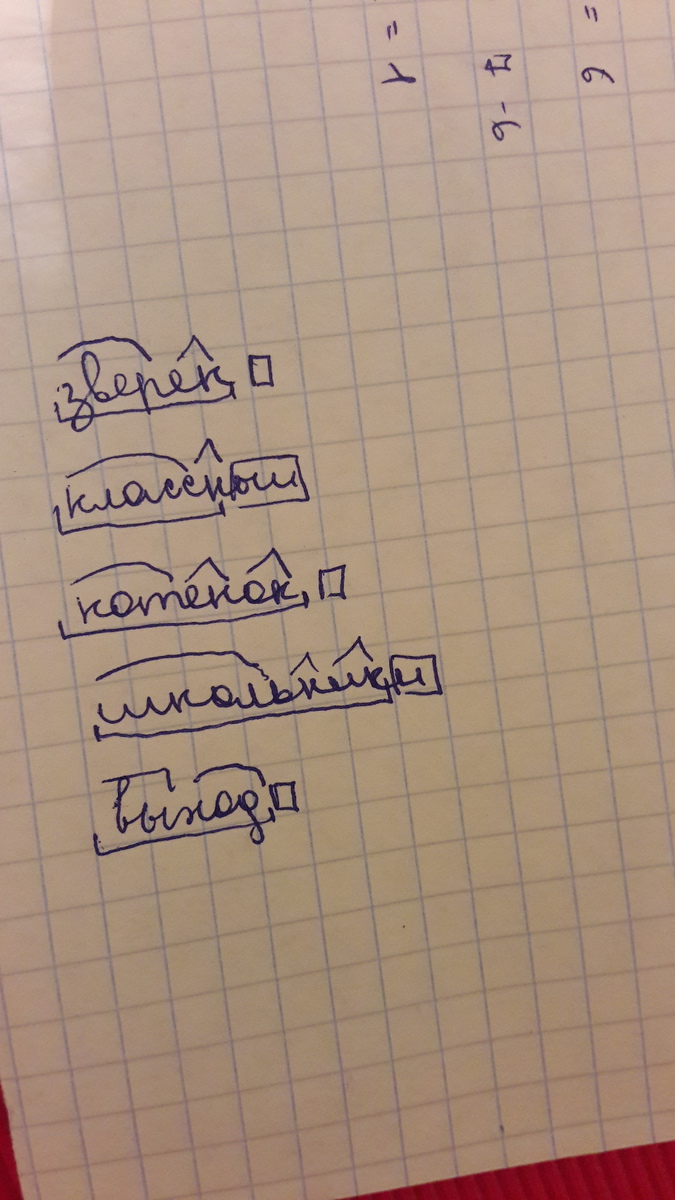 зверек
классный
котёнок
школьники
выход